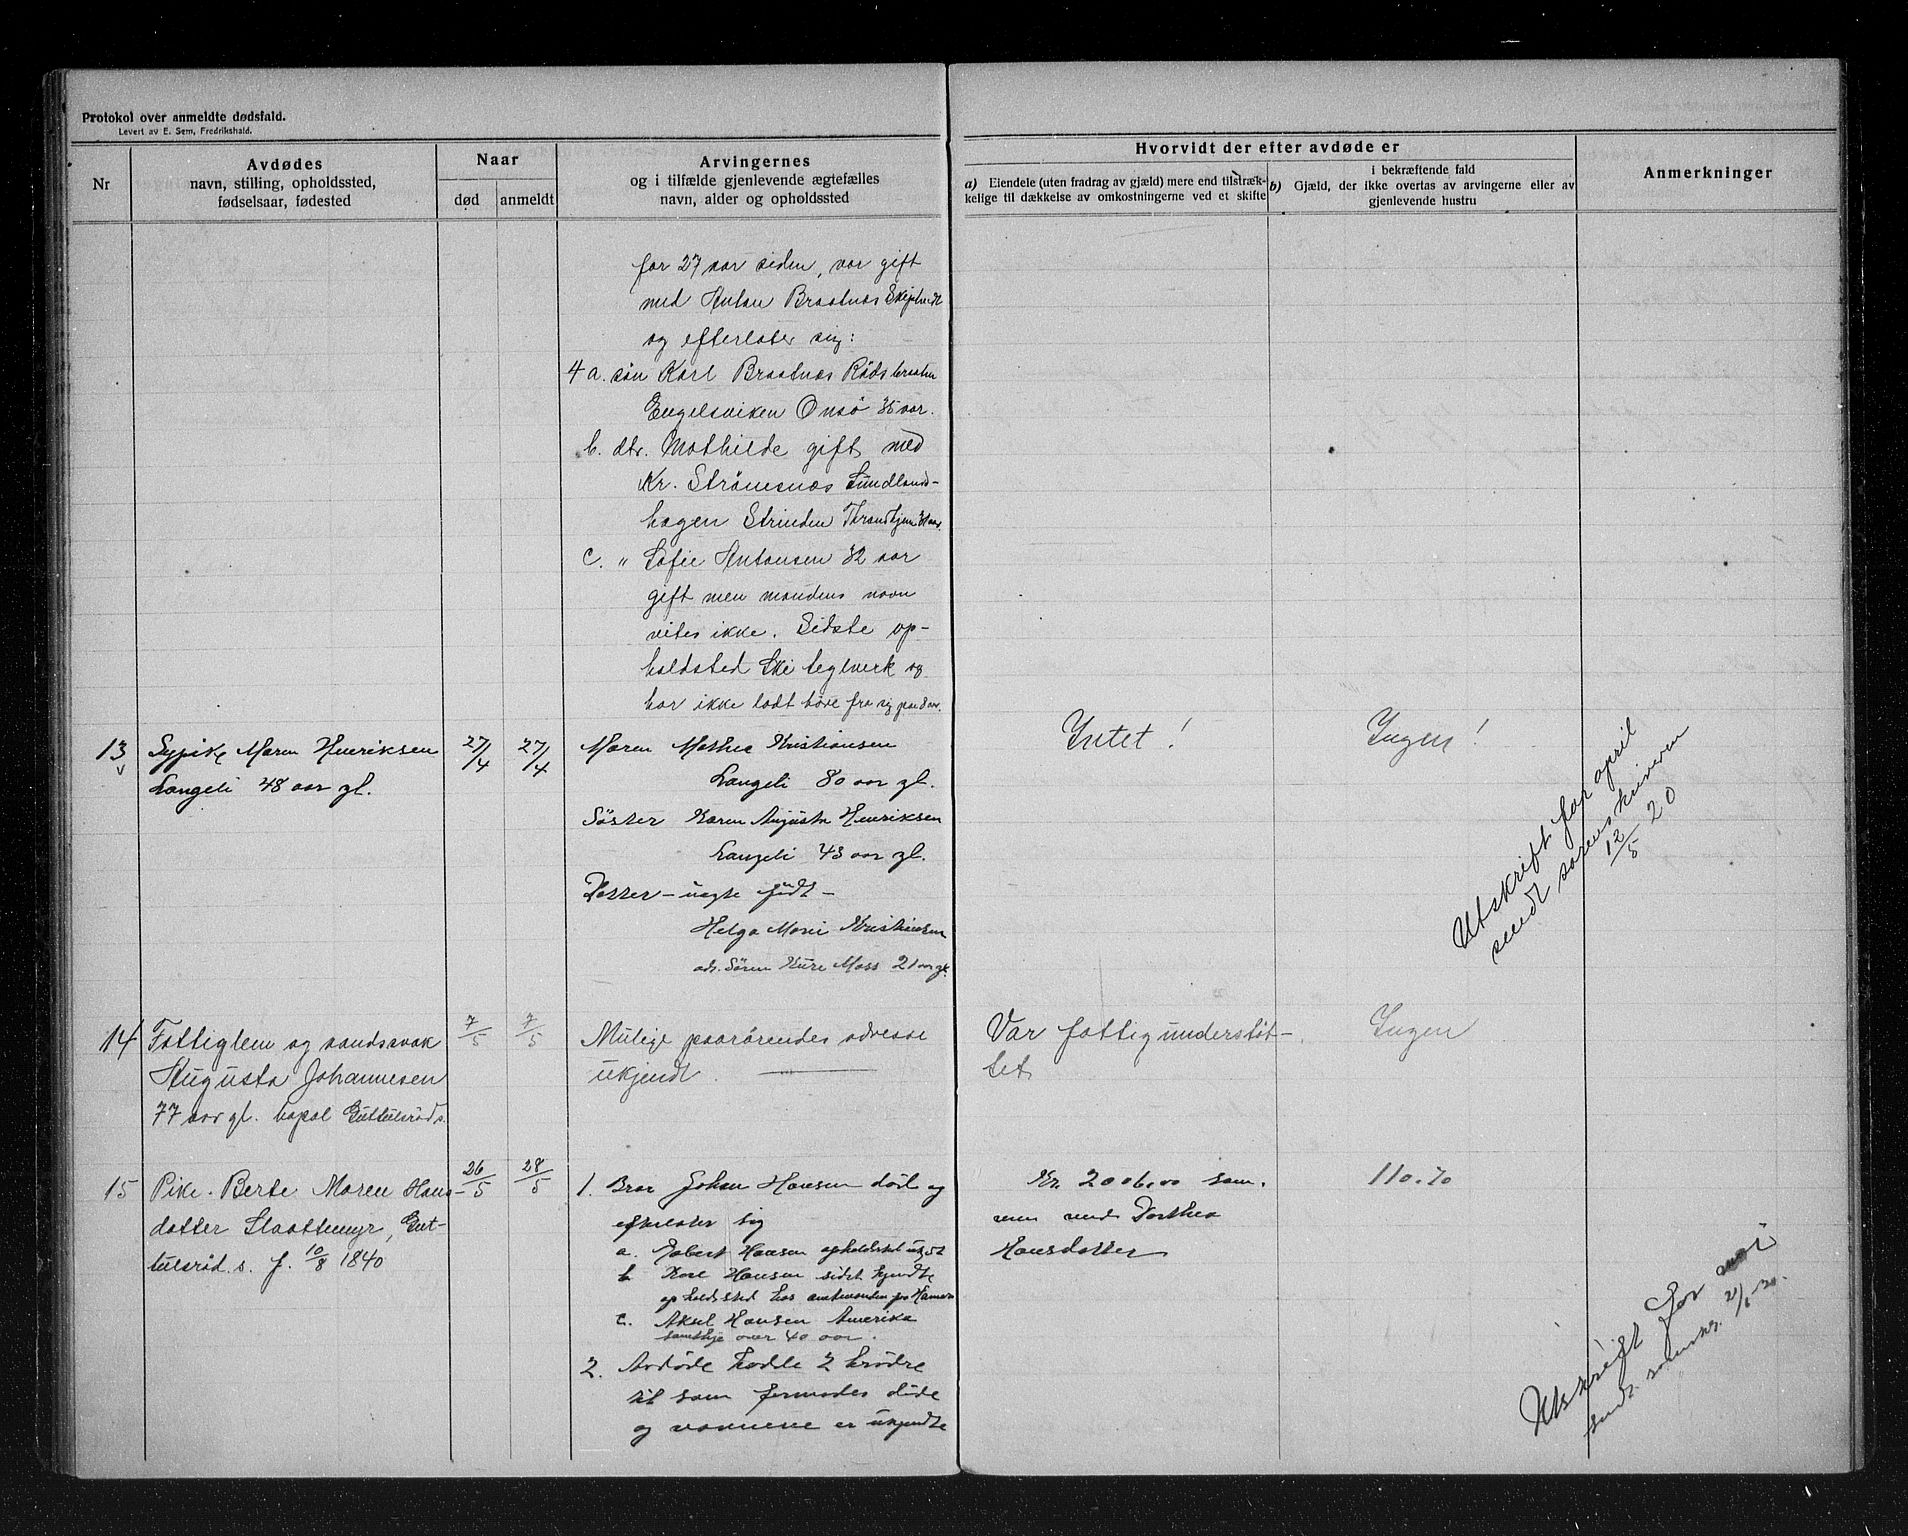 Protokol over anmeldte dødsfald.
Levert av E. Sem, Fredrikshald.
Nr
Avdødes
navn, stilling, opholdssted,
fødselsaar, fødested
Naar
død
anmeldt
Arvingernes
og i tilfælde gjenlevende ægtefælles
navn, alder og opholdssted
Hvorvidt der efter avdøde er
a) Eiendele (uten fradrag av gjæld) mere end tilstræk-
kelige til dækkelse av omkostningerne ved et skifte
i bekræftende fald
b) Gjæld, der ikke overtas av arvingerne eller av
gjenlevende hustru
Anmerkninger
for 27 aar siden, var gift
med Anton Braatnas
og efterlater sig:
4 a. søn Karl Braatnas
Engelsviken Onsø 35 aar.
b. dtr. Mathilde gift med
Kr. Strömsnæs Sundlands-
hagen Strinden Trondhjem
c. " Sofie Antonsen 32 aar
gift men mandens navn
vites ikke. Sidste op-
holdsted Ski teglverk og
har ikke latt höre fra sig paa 8 aar.
13
Sypike Maren Henriksen
Langeli 48 aar gl.
27/4
27/4
Maren Mathea Kristiansen
Langeli 80 aar gl.
Söster Karen Augusta Henriksen
Langeli 43 aar gl.
Datter – uegte född –
Helga Marie Kristiansen
adr. Sören Kure Moss 21 aar gl.
Intet!
Ingen!
Utskrift for april
sendt sorenskriveren
12/5 20
14
Fattiglem og aandssvak
Augusta Johannesen
77 aar gl. Guttulsröd s.
7/5
7/5
Mulige paarörendes adresse
ukjendt.
Var fattigunderstöt-
tet
Ingen
15
Pike. Berte Maren Hans-
datter Slaattemyr, Gut-
tulsröd. s. f. 10/8 1840
26/5
28/5
1. Bror Johan Hansen död og
efterlater sig
a. Robert Hansen opholdsted
b Karl Hansen sidst kjendte
opholdssted hos amtmanden paa Hamar
c. Aksel Hansen Amerika
samtlige over 40 aar.
2. Avdöde hadde 2 brödre
til som formodes döde
og navnene er ukjendte
Kr. 2006,00 sam.
men med Dorthea
Hansdatter
110.70
Utskrift for mai
sendt sorenskr.